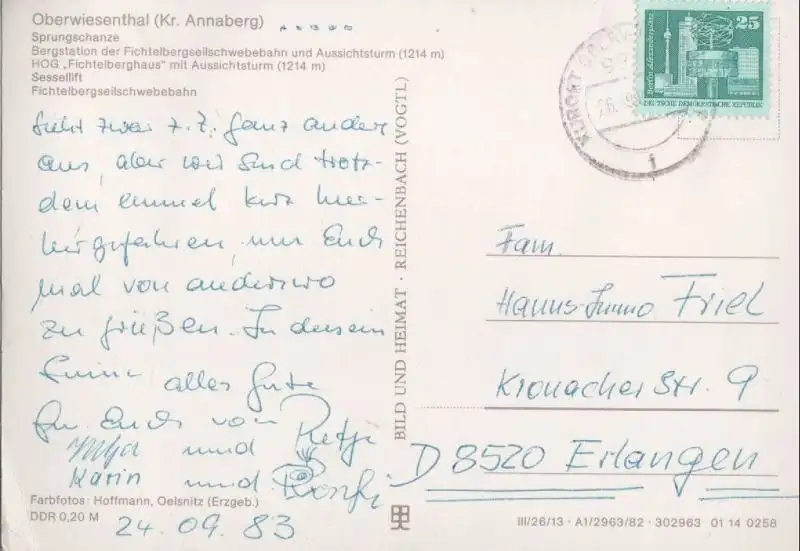 Oberwiesenthal (Kr. Annaberg)
Sprungschanze
Bergstation der Fichtelbergseilschwebebahn und Aussichtsturm (1214 m)
HOG „Fichtelberghaus" mit Aussichtsturm (1214 m)
Sessellift
Fichtelbergseilschwebebahn
sieht zwar z. Z. ganz anders
aus, aber wir sind trotz-
dem einmal kurz hier-
hergefahren, um Euch
mal von anderswo
zu grüßen. In diesem
Sinne alles Gute
für Euch von Petja
und
Karin und
Farbfotos: Hoffmann, Oelsnitz (Erzgeb.)
DDR 0,20 M
24.09.83
BILD UND HEIMAT · REICHENBACH (VOGTL)
KURORT
25
Berlin, Alexanderplatz
DEUTSCHE DEMOKRATISCHE REPUBLIK
Fam.
Hanns-Immo Friel
Kronacher Str. 9
D 8520 Erlangen
III/26/13 · A1/2963/82 · 302963 01 14 0258